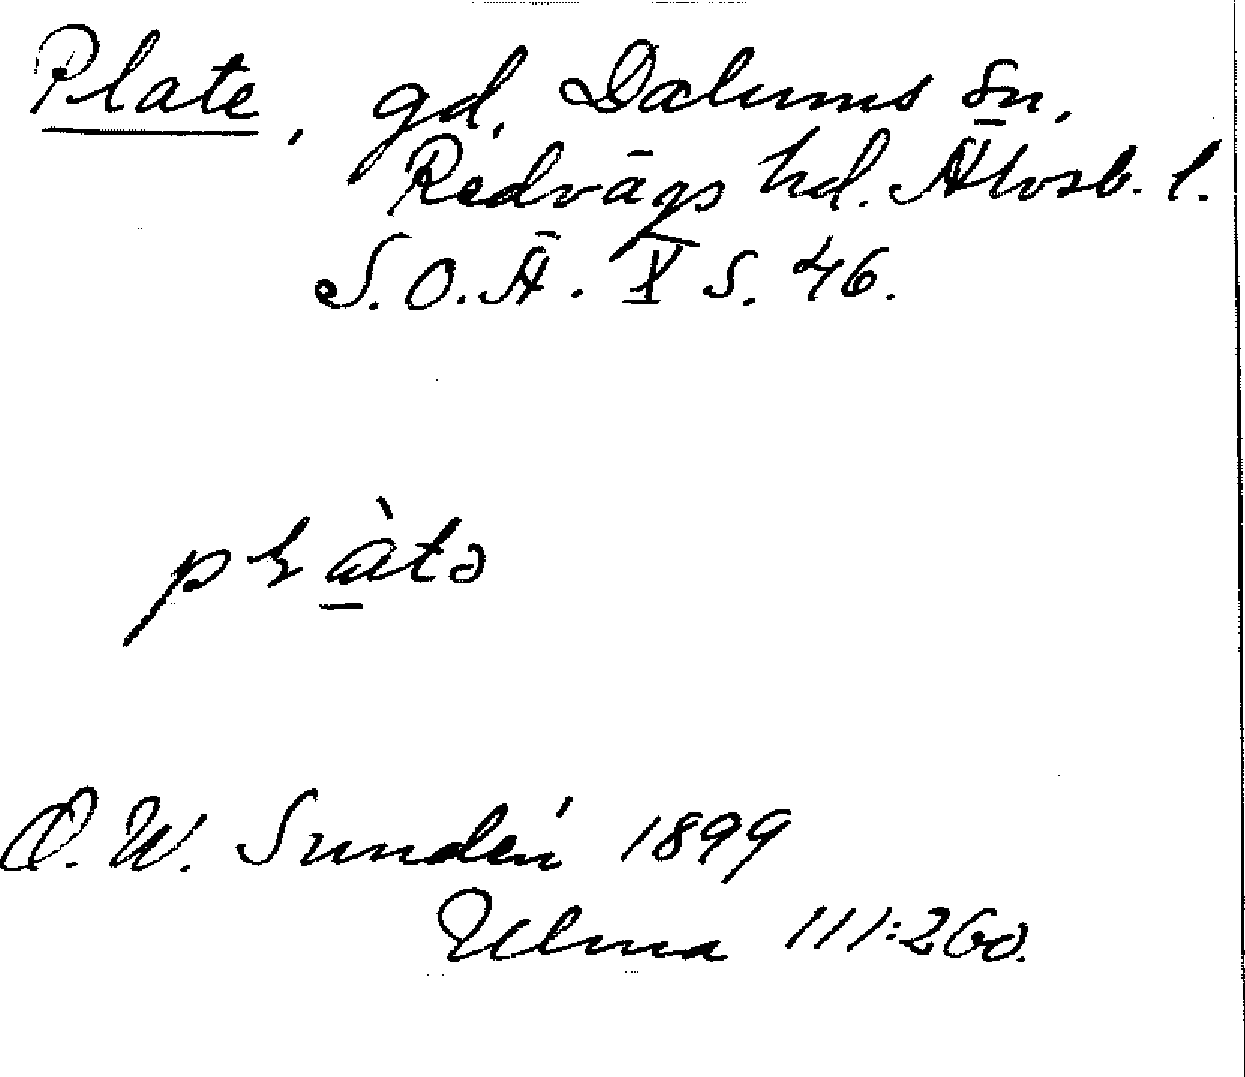 Plate, gd, Dalums sn,
Redvägs hd. Älvsb. l.
S.O.Ä. X S. 46.
plàtə
D. W. Sundén 1899
Ulma 111:260.